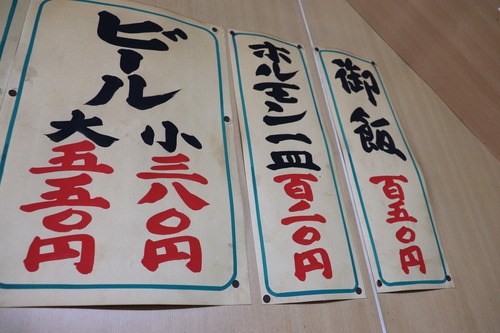 御飯
百五〇円
ホルモン一皿
百二〇円
ビール
小三八〇円
大五五〇円